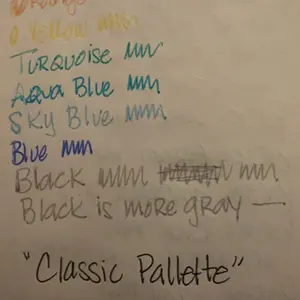 Orange
Yellow
Turquoise
Aqua Blue
Sky Blue
Blue
Black
Black is more gray —
"Classic Pallette"